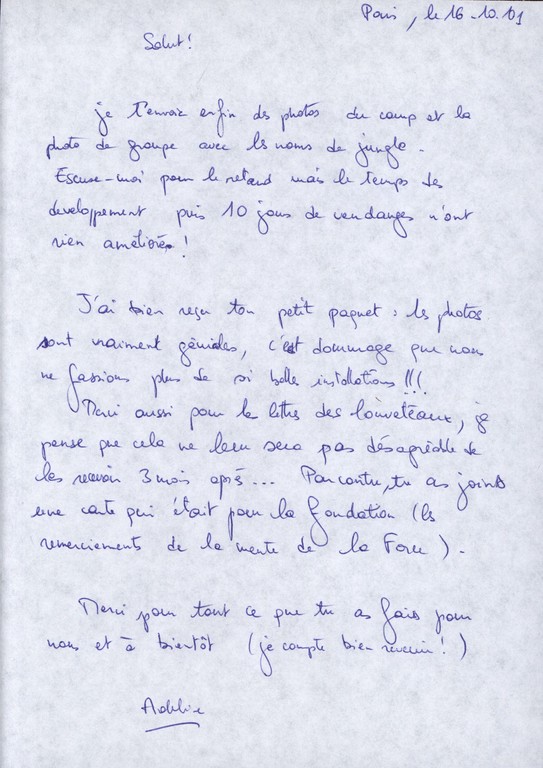 Paris, le 16-10.01
Salut!
je t'envoie enfin des photos du camp et la
photo de groupe avec les noms de jungle.
Escuse-moi pour le retard mais le temps des
developpement puis 10 jours de vendanges n'ont
rien amélioré!
J'ai bien reçu ton petit paquet : les photos
sont vraiment géniales, c'est dommage que nous
ne fassions plus de si belles installations !!!
Merci aussi pour les lettres des louveteaux, je
pense que cela ne leur sera pas désagréable de
les recevoir 3 mois après... Par contre, tu as joint
une carte qui était pour la fondation (les
remerciements de la meute de la Force).
Merci pour tout ce que tu as fais pour
nous et à bientôt (je compte bien revenir!)
Adeline